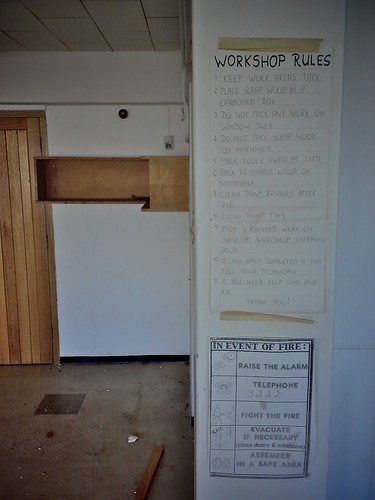 WORKSHOP RULES
1. KEEP WORK AREAS TIDY
2. PLACE SCRAP WOOD IN A
CARDBOARD BOX
3. DO NOT PACK ANY WORK ON
WINDOW SILLS
4. DO NOT PACK SCRAP WOOD
ON MACHINES
5. PACK TOOLS AWAY AT END
6. WOOD
7. CLEAN PAINT BRUSHES AFTER
USE
8. CLOSE PAINT TINS
9. PACK UNFINISHED WORK ON
WORKSHOP
DOOR
10. IF YOU HAVE COMPLETED A JOB
TELL YOUR TECHNICIAN
11. IF YOU NEED HELP COME AND
ASK
THANK YOU!
IN EVENT OF FIRE:
RAISE THE ALARM
TELEPHONE
3222
FIGHT THE FIRE
EVACUATE
IF NECESSARY
(close doors & windows)
ASSEMBLE
IN A SAFE AREA